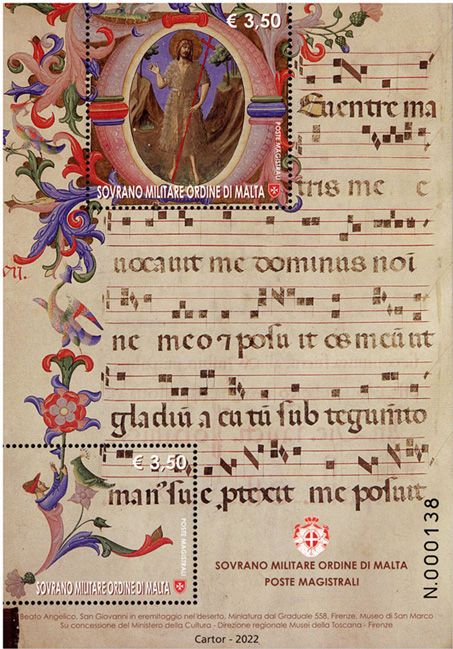 € 3,50
Euentre ma
POSTE MAGISTRALI
SOVRANO MILITARE ORDINE DI MALTA
tris me e
uocauit me dominus noī
ne meo ⁊ posu it os meū ut
gladiū a cu tū sub tegumēto
€ 3,50
man⁹ su e ꝓtexit me posuit
POSTE MAGISTRALI
SOVRANO MILITARE ORDINE DI MALTA
SOVRANO MILITARE ORDINE DI MALTA
POSTE MAGISTRALI
N.000138
Beato Angelico, San Giovanni in eremitaggio nel deserto, Miniatura dal Graduale 558, Firenze, Museo di San Marco
Su concessione del Ministero della Cultura - Direzione regionale Musei della Toscana - Firenze
Cartor - 2022